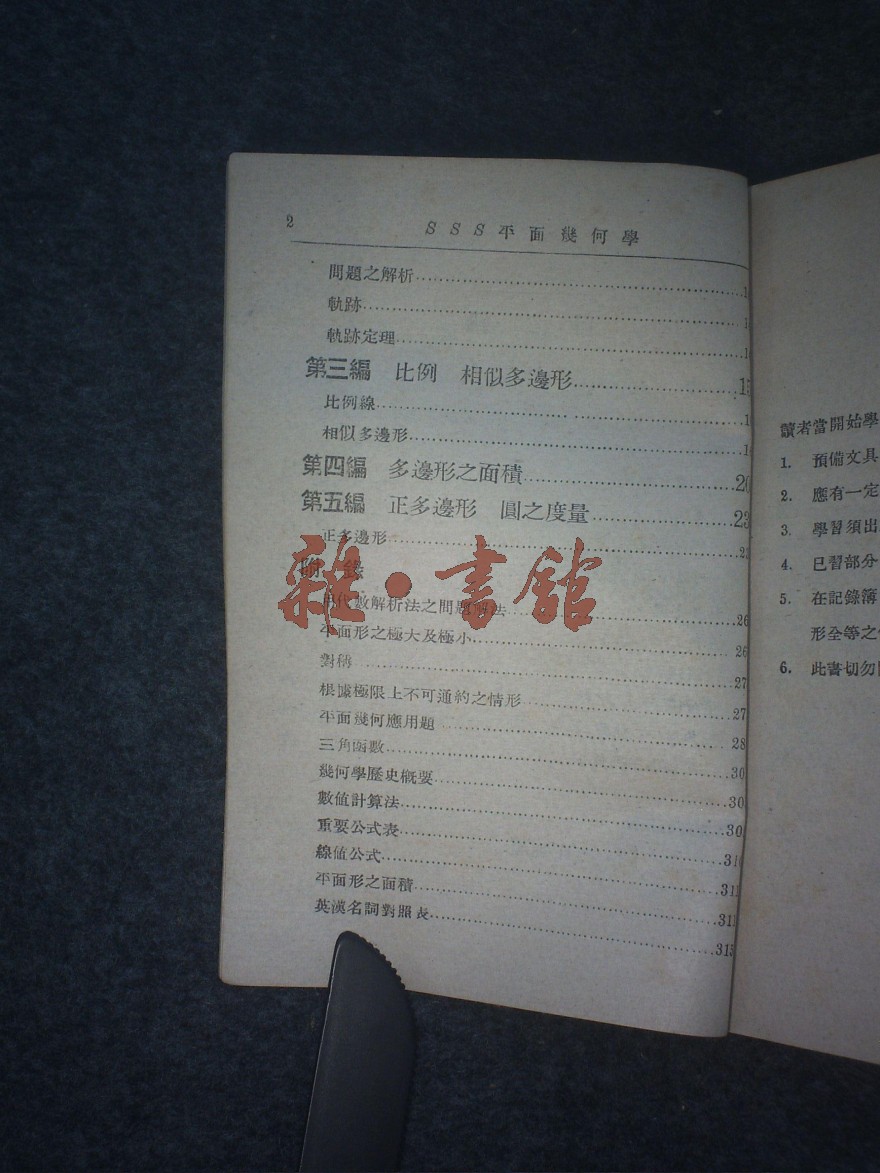 2
SSS平面幾何學
問題之解析
軌跡
軌跡定理
第三編 比例 相似多邊形
比例線
相似多邊形
第四編 多邊形之面積
第五編 正多邊形 圓之度量
正多邊形
附錄
用代數解析法之問題解法 26
平面形之極大及極小 26
對稱 27
根據極限上不可通約之情形 27
平面幾何應用題 28
三角函數 30
幾何學歷史概要 30
數值計算法 30
重要公式表 31
線值公式 311
平面形之面積 311
英漢名詞對照表 315
雜·書館
讀者當開始學
1. 預備文具
2. 應有一定
3. 學習須出
4. 已習部分
5. 在記錄簿
形全等之
6. 此書切勿